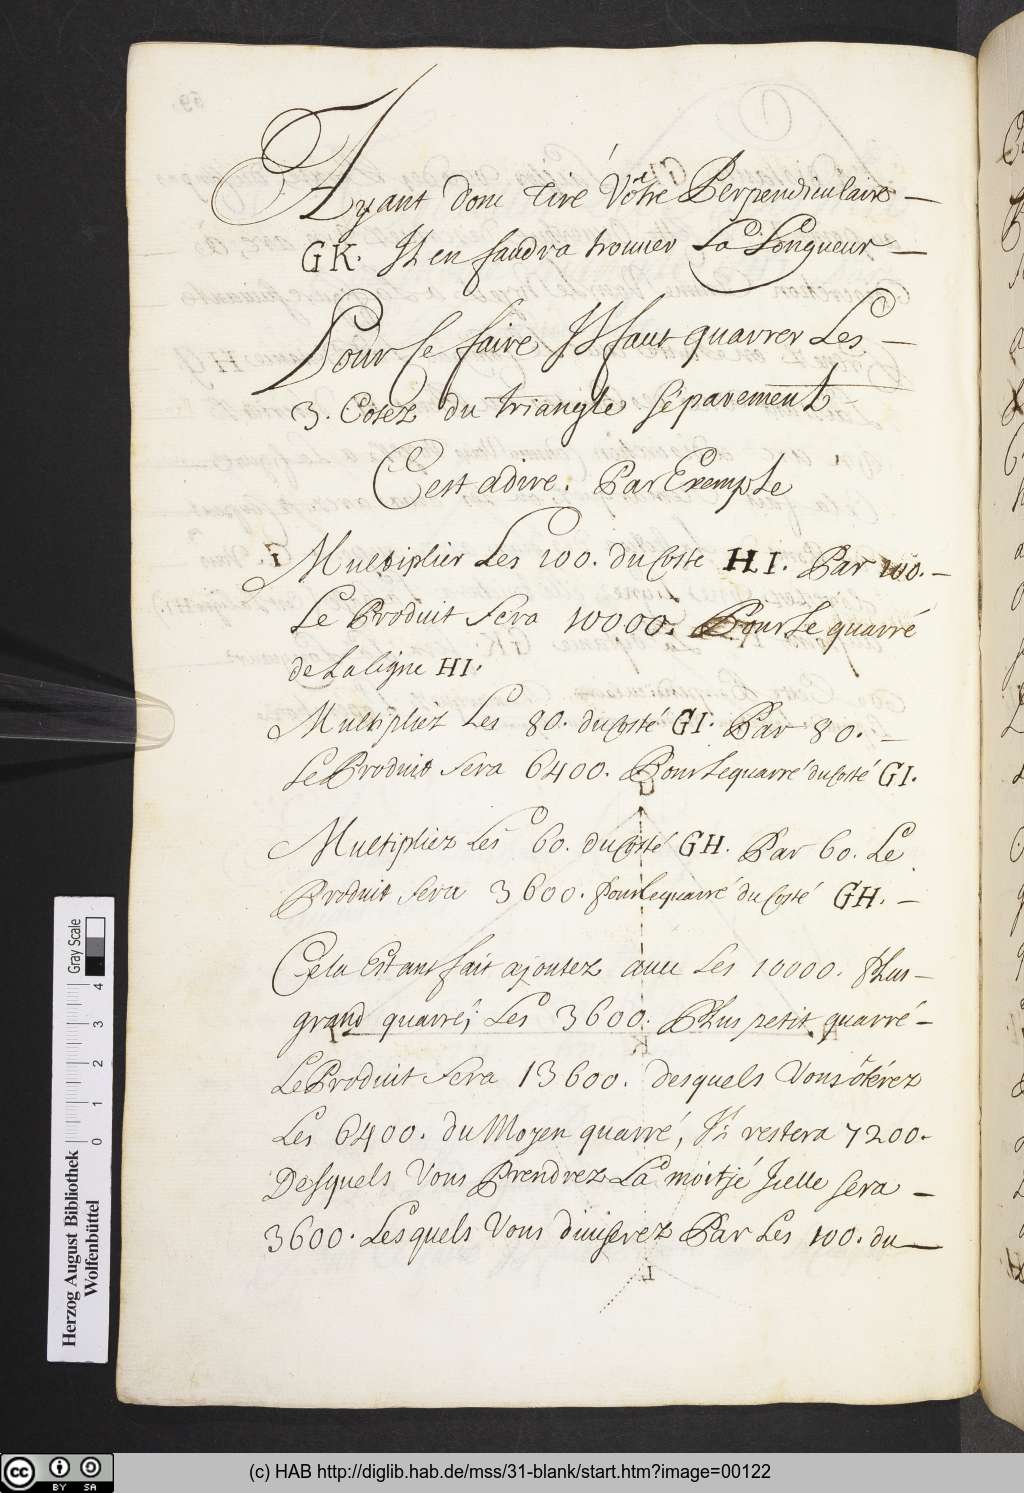 Ayant donc tiré Vôtre Perpendiculaire –
GK. Il en faudra trouver La Longueur –
Pour Ce faire Il faut quarrer Les –
3. Cotez du triangle séparement
C'est adire. Par Exemple
1 Multiplier Les 100. du Coste HI. Par 100. –
Le Produit Sera 10000. Pour Le quarré
de La ligne HI.
Multipliéz Les 80. du Costé GI. Par 80. –
Le Produit Sera 6400. Pour Le quarré du Costé GI.
Multipliez Les 60. du Costé GH. Par 60. Le
Produit Sera 3600. Pour Le quarré du Costé GH. –
Cela Estant fait ajoutez avec Les 10000. Plus –
grand quarré, Les 3600. Plus petit quarré –
Le Produit Sera 13600. desquels Vous ôterez
Les 6400. du Moyen quarré, Il restera 7200.
Desquels Vous Prendrez La moitjé Icelle sera –
3600. Lesquels Vous diviserez Par Les 100. du –
Gray Scale
0 1 2 3 4
Herzog August Bibliothek
Wolfenbüttel
(c) HAB http://diglib.hab.de/mss/31-blank/start.htm?image=00122
cc BY SA